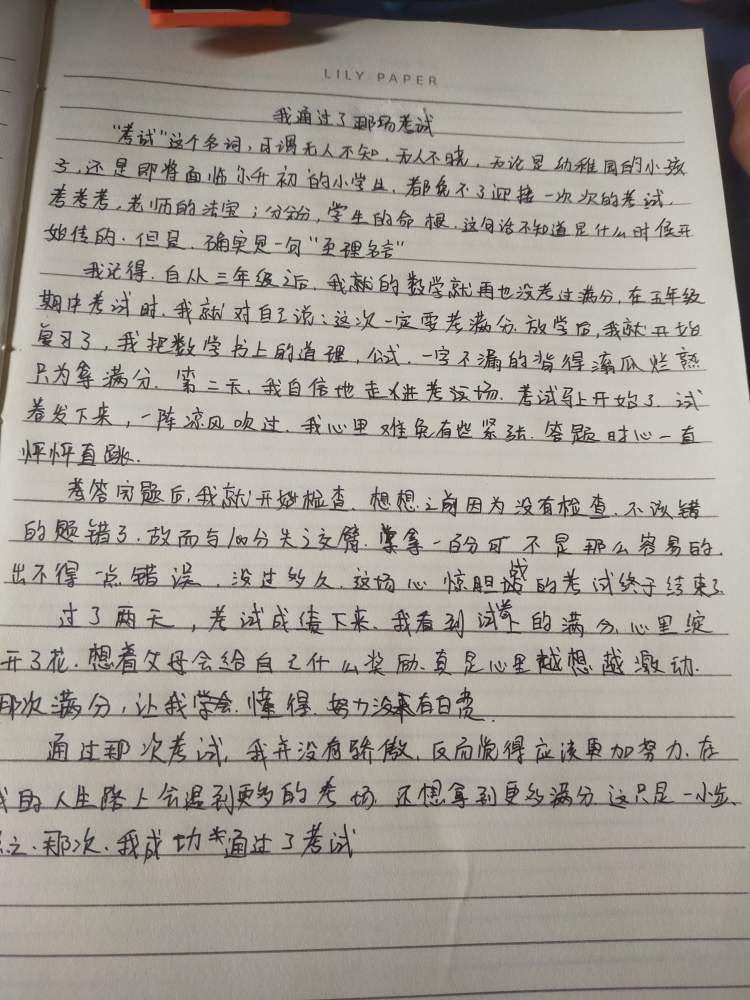 LILY PAPER
我通过了那场考试
"考试"这个名词,可谓无人不知,无人不晓,无论是幼稚园的小孩
子,还是即将面临小升初的小学生,都免不了迎接一次次的考试,
考考考,老师的法宝;分分分,学生的命根,这句话不知道是什么时候开
始传的.但是,确实是一句"至理名言"
我记得,自从三年级之后,我就的数学就再也没考过满分,在五年级
期中考试时,我就对自己说:这次一定要考满分.放学后,我就开始
复习了,我把数学书上的道理,公式,一字不漏的背得滚瓜烂熟
只为拿满分.第二天,我自信地走进考场.考试马上开始了.试
卷发下来,一阵凉风吹过.我心里难免有些紧张.答题时心一直
怦怦直跳.
答完题后,我就开始检查.想想之前因为没有检查,不该错
的题错了.故而与100分失之交臂.拿一百分可不是那么容易的.
出不得一点错误,没过多久,这场心惊胆战的考试终于结束了
过了两天,考试成绩下来.我看到试卷上的满分,心里绽
开了花.想着父母会给自己什么奖励.真是心里越想越激动.
那次满分,让我懂得,努力没有白费.
通过那次考试,我并没有骄傲,反而觉得应该更加努力.在
我的人生路上会遇到更多的考场.还想拿到更多满分.这只是一小步、
总之.那次.我成功通过了考试